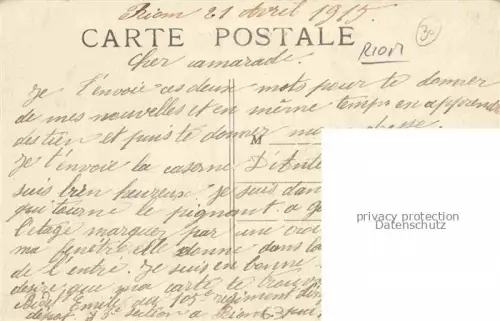 Riom 21 Avril 1915
CARTE POSTALE
30
RIOM
Cher camarade.
Je t'envoie ces deux mots pour te donner
de mes nouvelles et en même temps en apprendre
des tien et puis te donner mon adresse.
M
Je t'envoie la caserne D'Ante
suis bien heureux je suis dan
qui tourne le pignant. a
l'étage marquer par une croi
ma fenêtre elle donne dans la
de l'entré. Je suis en bonne
desire que ma carte te trouve
Emile du 105e regiment d'in
depot. section a Riom
privacy protection
www.ansichtskartenversand.com